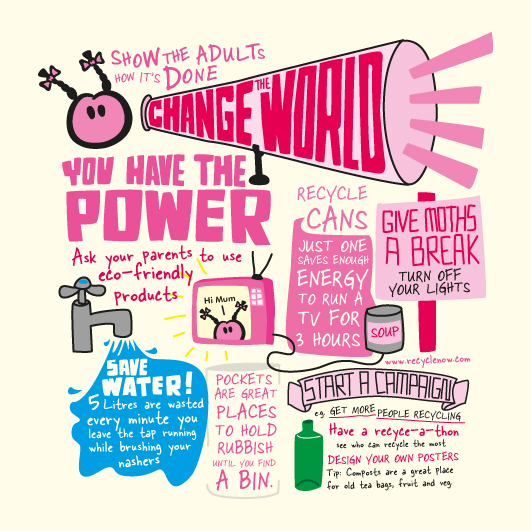 SHOW THE ADULTS
HOW IT'S DONE
CHANGE THE WORLD
YOU HAVE THE
POWER
Ask your parents to use
eco-friendly
products
Hi Mum
RECYCLE
CANS
JUST ONE
SAVES ENOUGH
ENERGY
TO RUN A
TV FOR
3 HOURS
SOUP
GIVE MOTHS
A BREAK
TURN OFF
YOUR LIGHTS
www.recyclenow.com
SAVE
WATER!
5 Litres are wasted
every minute you
leave the tap running
while brushing your
nashers
POCKETS
ARE GREAT
PLACES
TO HOLD
RUBBISH
UNTIL YOU FIND
A BIN.
START A CAMPAIGN
eg. GET MORE PEOPLE RECYCLING
Have a recyce-a-thon
see who can recycle the most
DESIGN YOUR OWN POSTERS
Tip: Composts are a great place
for old tea bags, fruit and veg